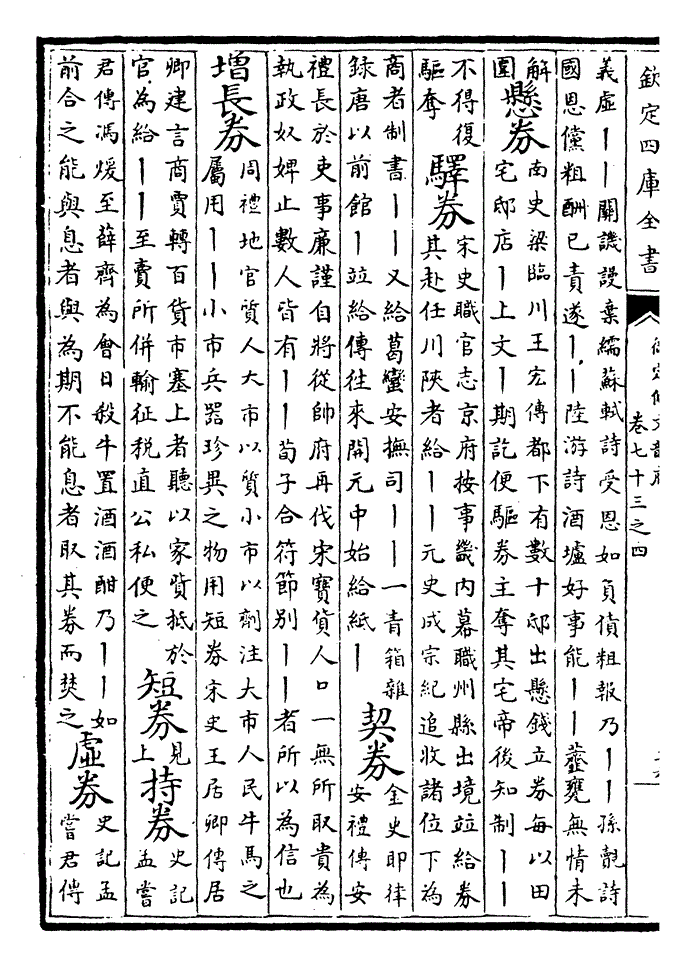 欽定四庫全書
卷七十三之四
義虛丨丨關譏謾棄繻蘇軾詩受恩如負債粗報乃丨丨孫覿詩
國恩儻粗酬已責遂丨丨陸游詩酒壚好事能丨丨虀甕無情未
解
圍
懸券
南史梁臨川王宏傳都下有數十邸出懸錢立券每以田
宅邸店丨上文丨期訖便驅券主奪其宅帝後知制丨丨
不得復
驅奪
驛券
宋史職官志京府按事畿内幕職州縣出境竝給券
其赴任川陜者給丨丨元史成宗紀追收諸位下為
商者制書丨丨又給葛蠻安撫司丨丨一青箱雜
録唐以前館丨竝給傳往來開元中始給紙丨
契券
金史即律
安禮傳安
禮長於吏事廉謹自將從帥府再伐宋寶貨人口一無所取貴為
執政奴婢止數人皆有丨丨荀子合符節别丨丨者所以為信也
增長券
周禮地官質人大市以質小市以劑注大市人民牛馬之
屬用丨丨小市兵器珍異之物用短券宋史王居卿傳居
卿建言商賈轉百貨市塞上者聽以家貲抵於
官為給丨丨至賣所併輸征税直公私便之
短券
見
上
持券
史記
孟嘗
君傳馮煖至薛齊為會日殺牛置酒酒酣乃丨丨如
前合之能與息者與為期不能息者取其券而焚之
虛券
史記孟
嘗君傳